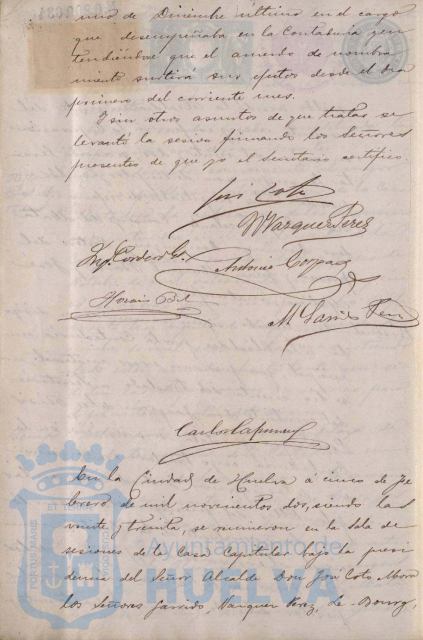 uno de Diciembre último en el cargo
que desempeñaba en la Contaduría, en-
tendiéndose que el acuerdo de nombra-
miento surtirá sus efectos desde el dia
primero del corriente mes.
Y sin otros asuntos de que tratar se
levantó la sesion firmando los Señores
presentes de que yo el Secretario certifico.
José Coto
M Vazquez Perez
Antonio
Horacio Bel
M. Garrido Perez
Carlos
En la Ciudad de Huelva á cinco de Fe-
brero de mil novecientos dos, siendo las
veinte y treinta, se reunieron en la Sala de
sesiones de la Casa Capitular bajo la presi-
dencia del Señor Alcalde Don José Coto Mora
los Señores Garrido, Vazquez Perez, Le-Bourg,
Ayuntamiento de
HUELVA